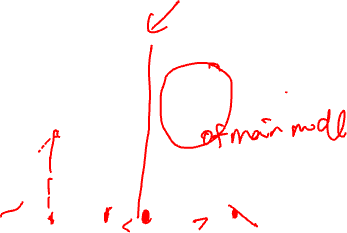 of main mode